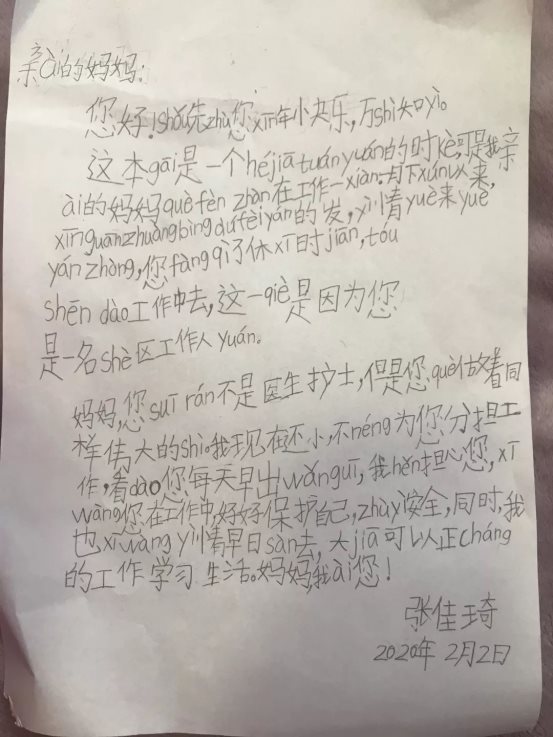 亲ài的妈妈:
您好!shǒu先zhù您xīn年小快乐,万shì知yì。
这本gāi是一个héjiātuányuán的时kè,可是我亲
ài的妈妈què fèn zhàn在工作一xiàn.
xīnguānzhuàngbìngdúfèiyán的发,yì情yuè来yuè
yánzhòng,您fàngqì了休xī时jiān,tóu
shēn dào工作中去,这一qiè是因为您
是一名shè区工作人yuán。
妈妈,您suī rán不是医生护士,但是您què做着同
样伟大的shì。我现在还小,不néng为您分担工
作,看dào您每天早出wǎnguī,我hěn担心您,xī
wàng您在工作中,好好保护自己,zhùyì安全,同时,我
也xīwàng yì情早日sàn去,大jiā可以人正cháng
的工作学习 生活。妈妈,我ài您!
张佳琦
2020年 2月2日